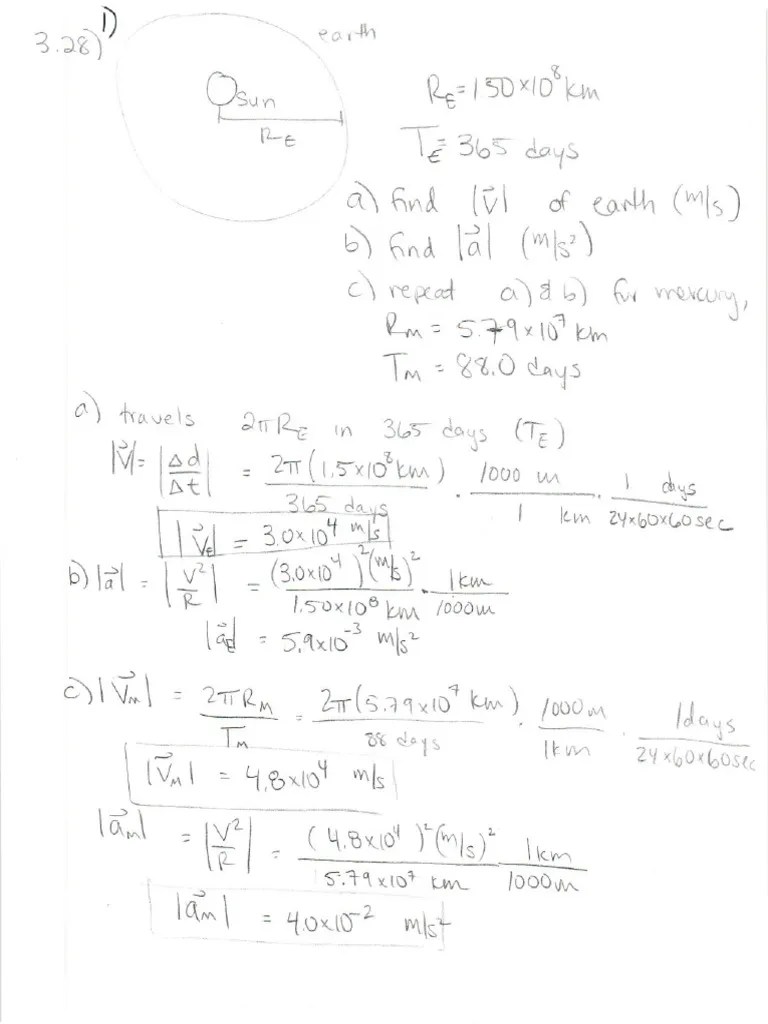 1)
3.28)
earth
Sun
R_E
R_E = 150×10^8 km
T_E = 365 days
a) find |v⃗| of earth (m/s)
b) find |a⃗| (m/s²)
c) repeat a) & b) for mercury,
R_M = 5.79×10^7 km
T_M = 88.0 days
a) travels 2πR_E in 365 days (T_E)
|v⃗| = |Δd/Δt| = 2π(1.5×10^8 km)/365 days · 1000 m/1 km · 1 days/24×60×60 sec
|v⃗_E| = 3.0×10^4 m/s
b) |a⃗| = |V²/R| = (3.0×10^4)²(m/s)²/1.50×10^8 km · 1km/1000m
|a⃗_E| = 5.9×10^-3 m/s²
c) |V⃗_M| = 2πR_M/T_M = 2π(5.79×10^7 km)/88 days · 1000m/1km · 1days/24×60×60sec
|V⃗_M| = 4.8×10^4 m/s
|a⃗_M| = |V²/R| = (4.8×10^4)²(m/s)²/5.79×10^7 km 1km/1000m
|a⃗_M| = 4.0×10^-2 m/s²